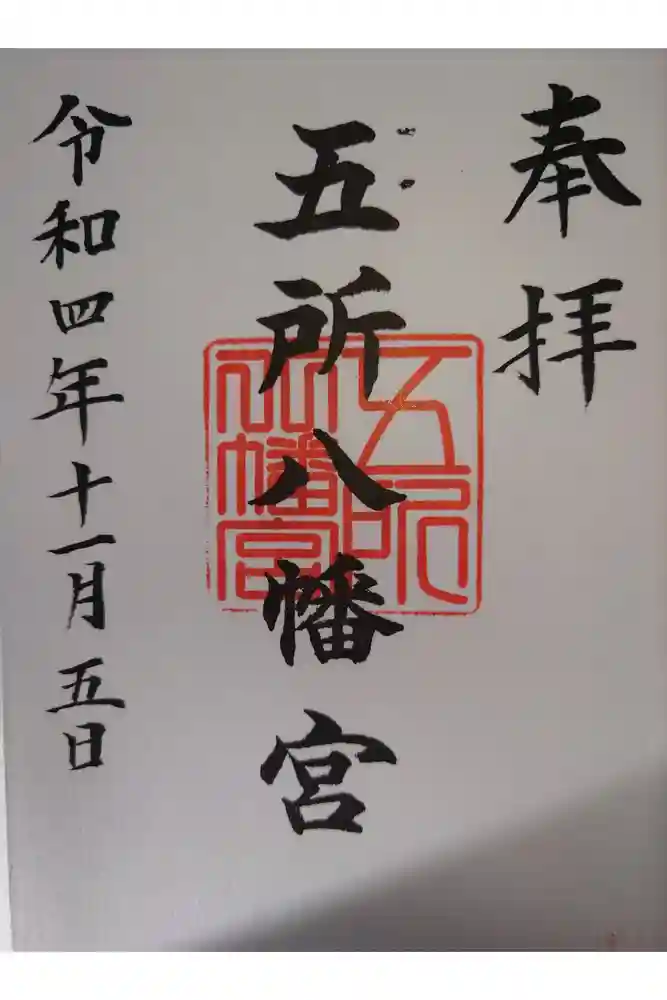 奉拝
五所八幡宮
五所八幡宮
令和四年十一月五日